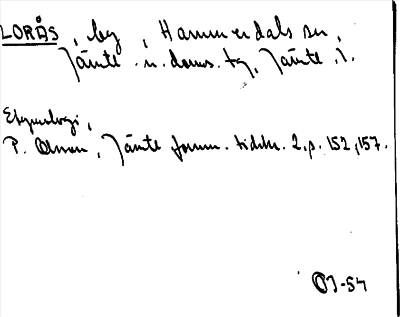 LORÅS, by, Hammerdals sn,
Jämtl. n. doms. tg, Jämtl. l.
Etymologi,
P. Olsson, Jämtl. fornm. tidskr. 2, p. 152, 157.
OJ-54